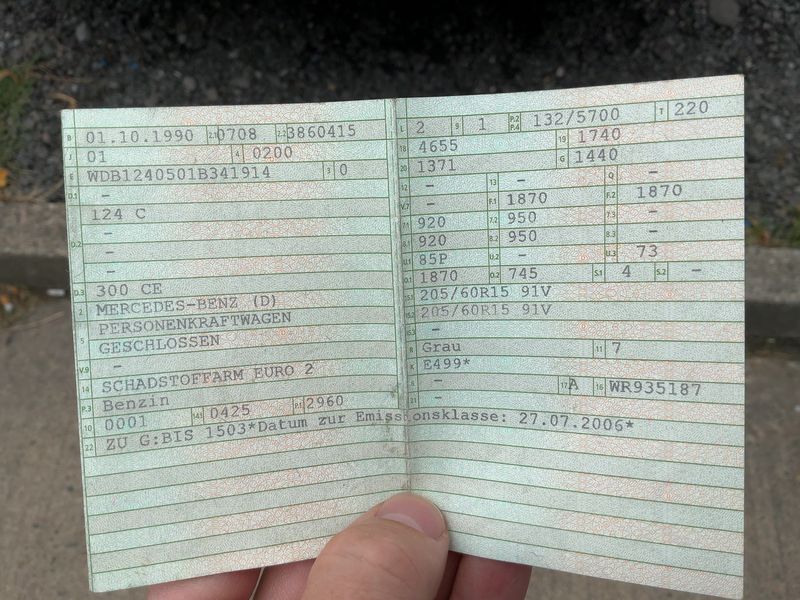 B 01.10.1990 2.1 0708 2.2 3860415
J 01 4 0200
E WDB1240501B341914 3 0
D.1 -
124 C
D.2 -
-
-
D.3 300 CE
2 MERCEDES-BENZ (D)
5 PERSONENKRAFTWAGEN
GESCHLOSSEN
V.9 -
14 SCHADSTOFFARM EURO 2
P.3 Benzin
10 0001 14.1 0425 P.1 2960
22 ZU G:BIS 1503*Datum zur Emissionsklasse: 27.07.2006*
L 2 9 1 P.2 P.4 132/5700 T 220
18 4655 19 1740
20 1371 G 1440
12 - 13 - Q -
V.7 - F.1 1870 F.2 1870
7.1 920 7.2 950 7.3 -
8.1 920 8.2 950 8.3 -
U.1 85P U.2 - U.3 73
O.1 1870 O.2 745 S.1 4 S.2 -
15.1 205/60R15 91V
15.2 205/60R15 91V
15.3 -
R Grau 11 7
K E499*
6 - 17 A 16 WR935187
21 -